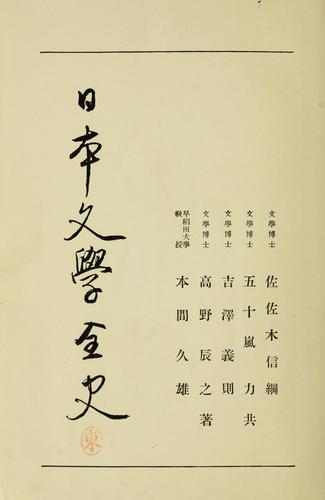 文學博士 佐佐木信綱
文學博士 五十嵐力共
文學博士 吉澤義則
文學博士 高野辰之著
早稻田大學教授 本間久雄
日本文學全史
東